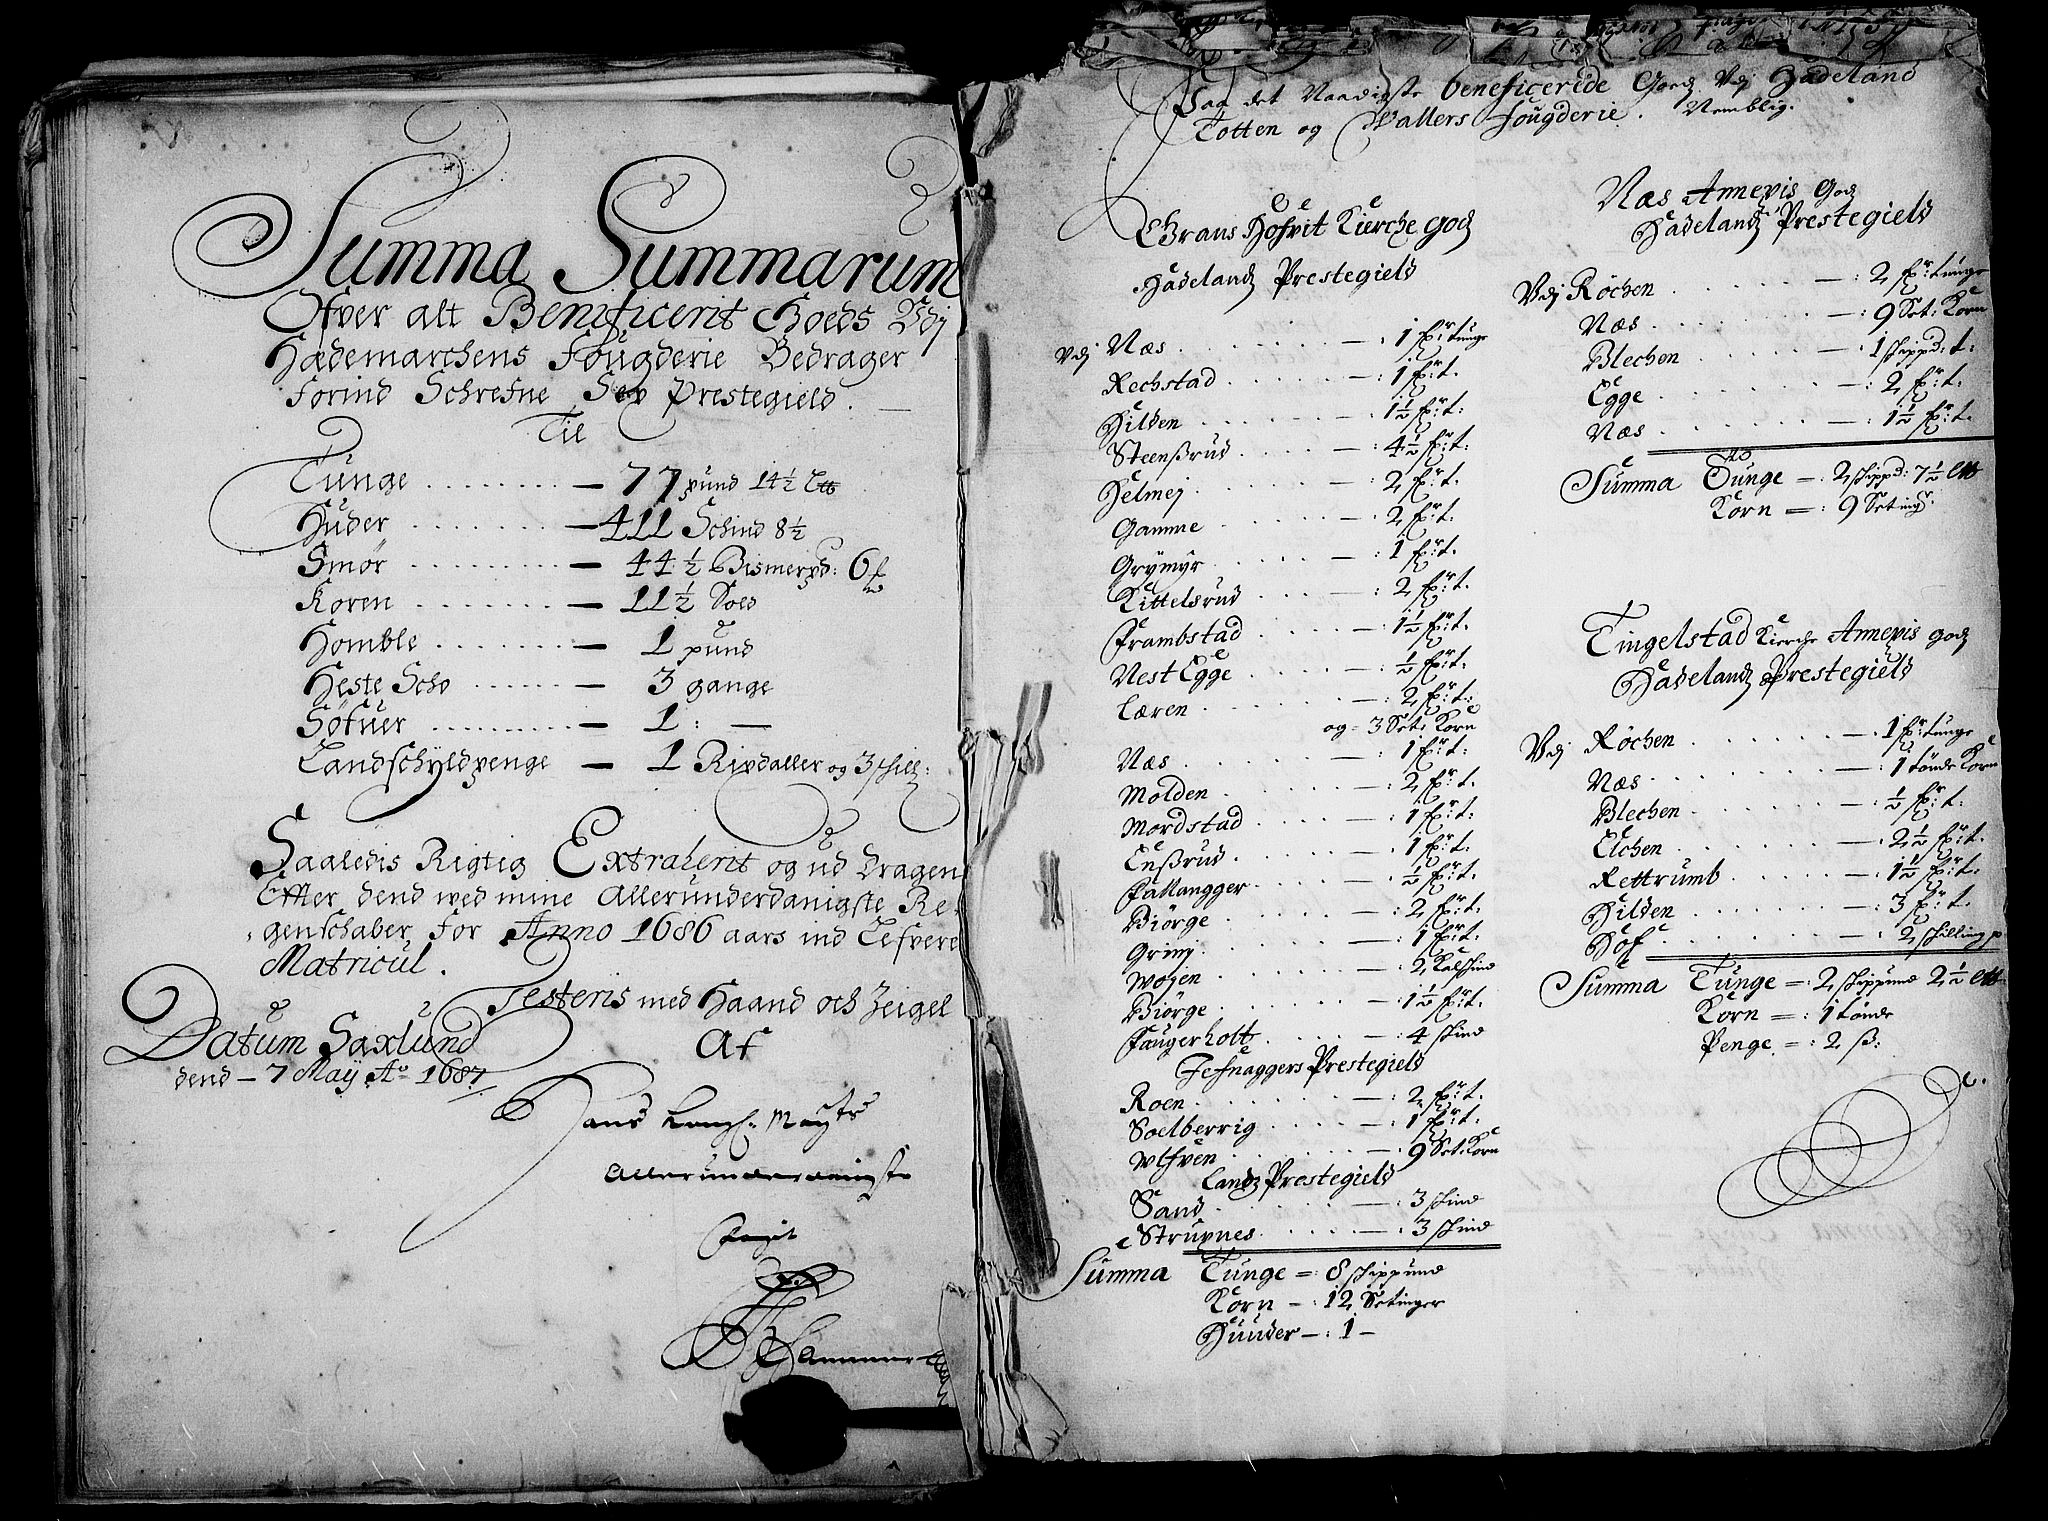 Summa Summarum
Ofver alt Beneficerit Goeds Udj
Hædemarchens Fougderie Bedrager
forind Schrefne Sex Prestegield.
Til
Tunge ........ — 77 pund 14½ Ltt
Huder ........ — 411 Schind 8½
Smør ........ — 44½ Bismerpd: 6
Koren ........ — 11½ Sold
Homble ....... — 1 pund
Heste Scho ...... — 3 gange
Søfuer .......... — 1 : —
Landschyldpenge — 1 Rixdaller og 3 skill:
Saaledis Rigtig Extraherit og ud dragen
Effter dend wed mine Allerunderdanigste Re-
genschaber for Anno 1686 aars ind Lefvere
Matricul.
Testeris med Haand och Zeigel
Datum Saxlund
Af
dend — 7 Maÿ Ao 1687
Hans Kongl. Maÿts
Allerunderdanigste
Fogit
Hammer
Paa det Naadigste beneficerede Goed Vdj Hadeland
Totten og Vallers fougderie. Nemblig.
Grans Hofvit Kierche god
Hadelandz Prestegield
Vdj Næs . . . . . . —: 1 fr: tunge
Rechstad . . . . . —: 1 fr: t.
Hilden . . . . . —: 1½ fr: t:
Steensrud . . . . —: 4½ fr: t:
Helmej . . . . . —: 2 fr: t.
Gamme . . . . . —: 2 fr: t.
Grymyr . . . . . —: 1 fr: t.
Kittelsrud . . . . —: 2 fr: t.
Frambstad . . . . —: 1½ fr: t.
Nest Egge . . . . —: ½ fr: t.
Læren . . . . . . —: 2 fr: t:
og = 3 Set: Korn
Næs . . . . . . —: 1 fr: t:
Molden . . . . . —: 2 fr: t.
Mordstad . . . . —: 1 fr: t.
Enssrud . . . . . —: 1 fr: t.
Fallangger . . . . —: ½ fr: t.
Biørge . . . . . —: 2 fr: t.
Grinj . . . . . —: 1 fr: t.
Wøjen . . . . . —: 2 Kalfskind
Biørge . . . . . —: 1½ fr: t.
Faugerholt . . . . —: 4 skind
Jefnaggers Prestegield
Roen . . . . . . —: 2 fr: t.
Soelberrig . . . . —: 1 fr: t.
Wlfven . . . . . —: 9 Set: Korn
Landz Prestegield
Sand . . . . . . —: 3 skind
Strupnes . . . . . —: 3 skind
Summa Tunge =: 8 skippund
Korn —: 12 Setinger
Huuder —: 1 —
Næs Annexis God
Hadelandz Prestegield
Vdj Røchen . . . . . —: 2 fr: tunge
Næs . . . . . . —: 9 Set: Korn
Blechen . . . . . —: 1 skippd: t.
Egge . . . . . . —: 2 fr: t.
Næs . . . . . . —: 1½ fr: t.
Summa Tunge —: 2 skippd: 7½ Ltt
Korn =: 9 Seting
Tingelstad Kierche Annexis God
Hadelandz Prestegield
Vdj Røchen . . . . . —: 1 fr: tunge
Næs . . . . . . —: 1 tønde Korn
Blechen . . . . . —: ½ fr: t.
Elchen . . . . . —: 2½ fr: t.
Rettrumb . . . . . —: 1½ fr: t.
Hilden . . . . . —: 3 fr: t.
Hof . . . . . . —: 2 skilling p
Summa Tunge =: 2 skippund 2½ Ltt
Korn =: 1 tønde
Penge =: 2 ß: